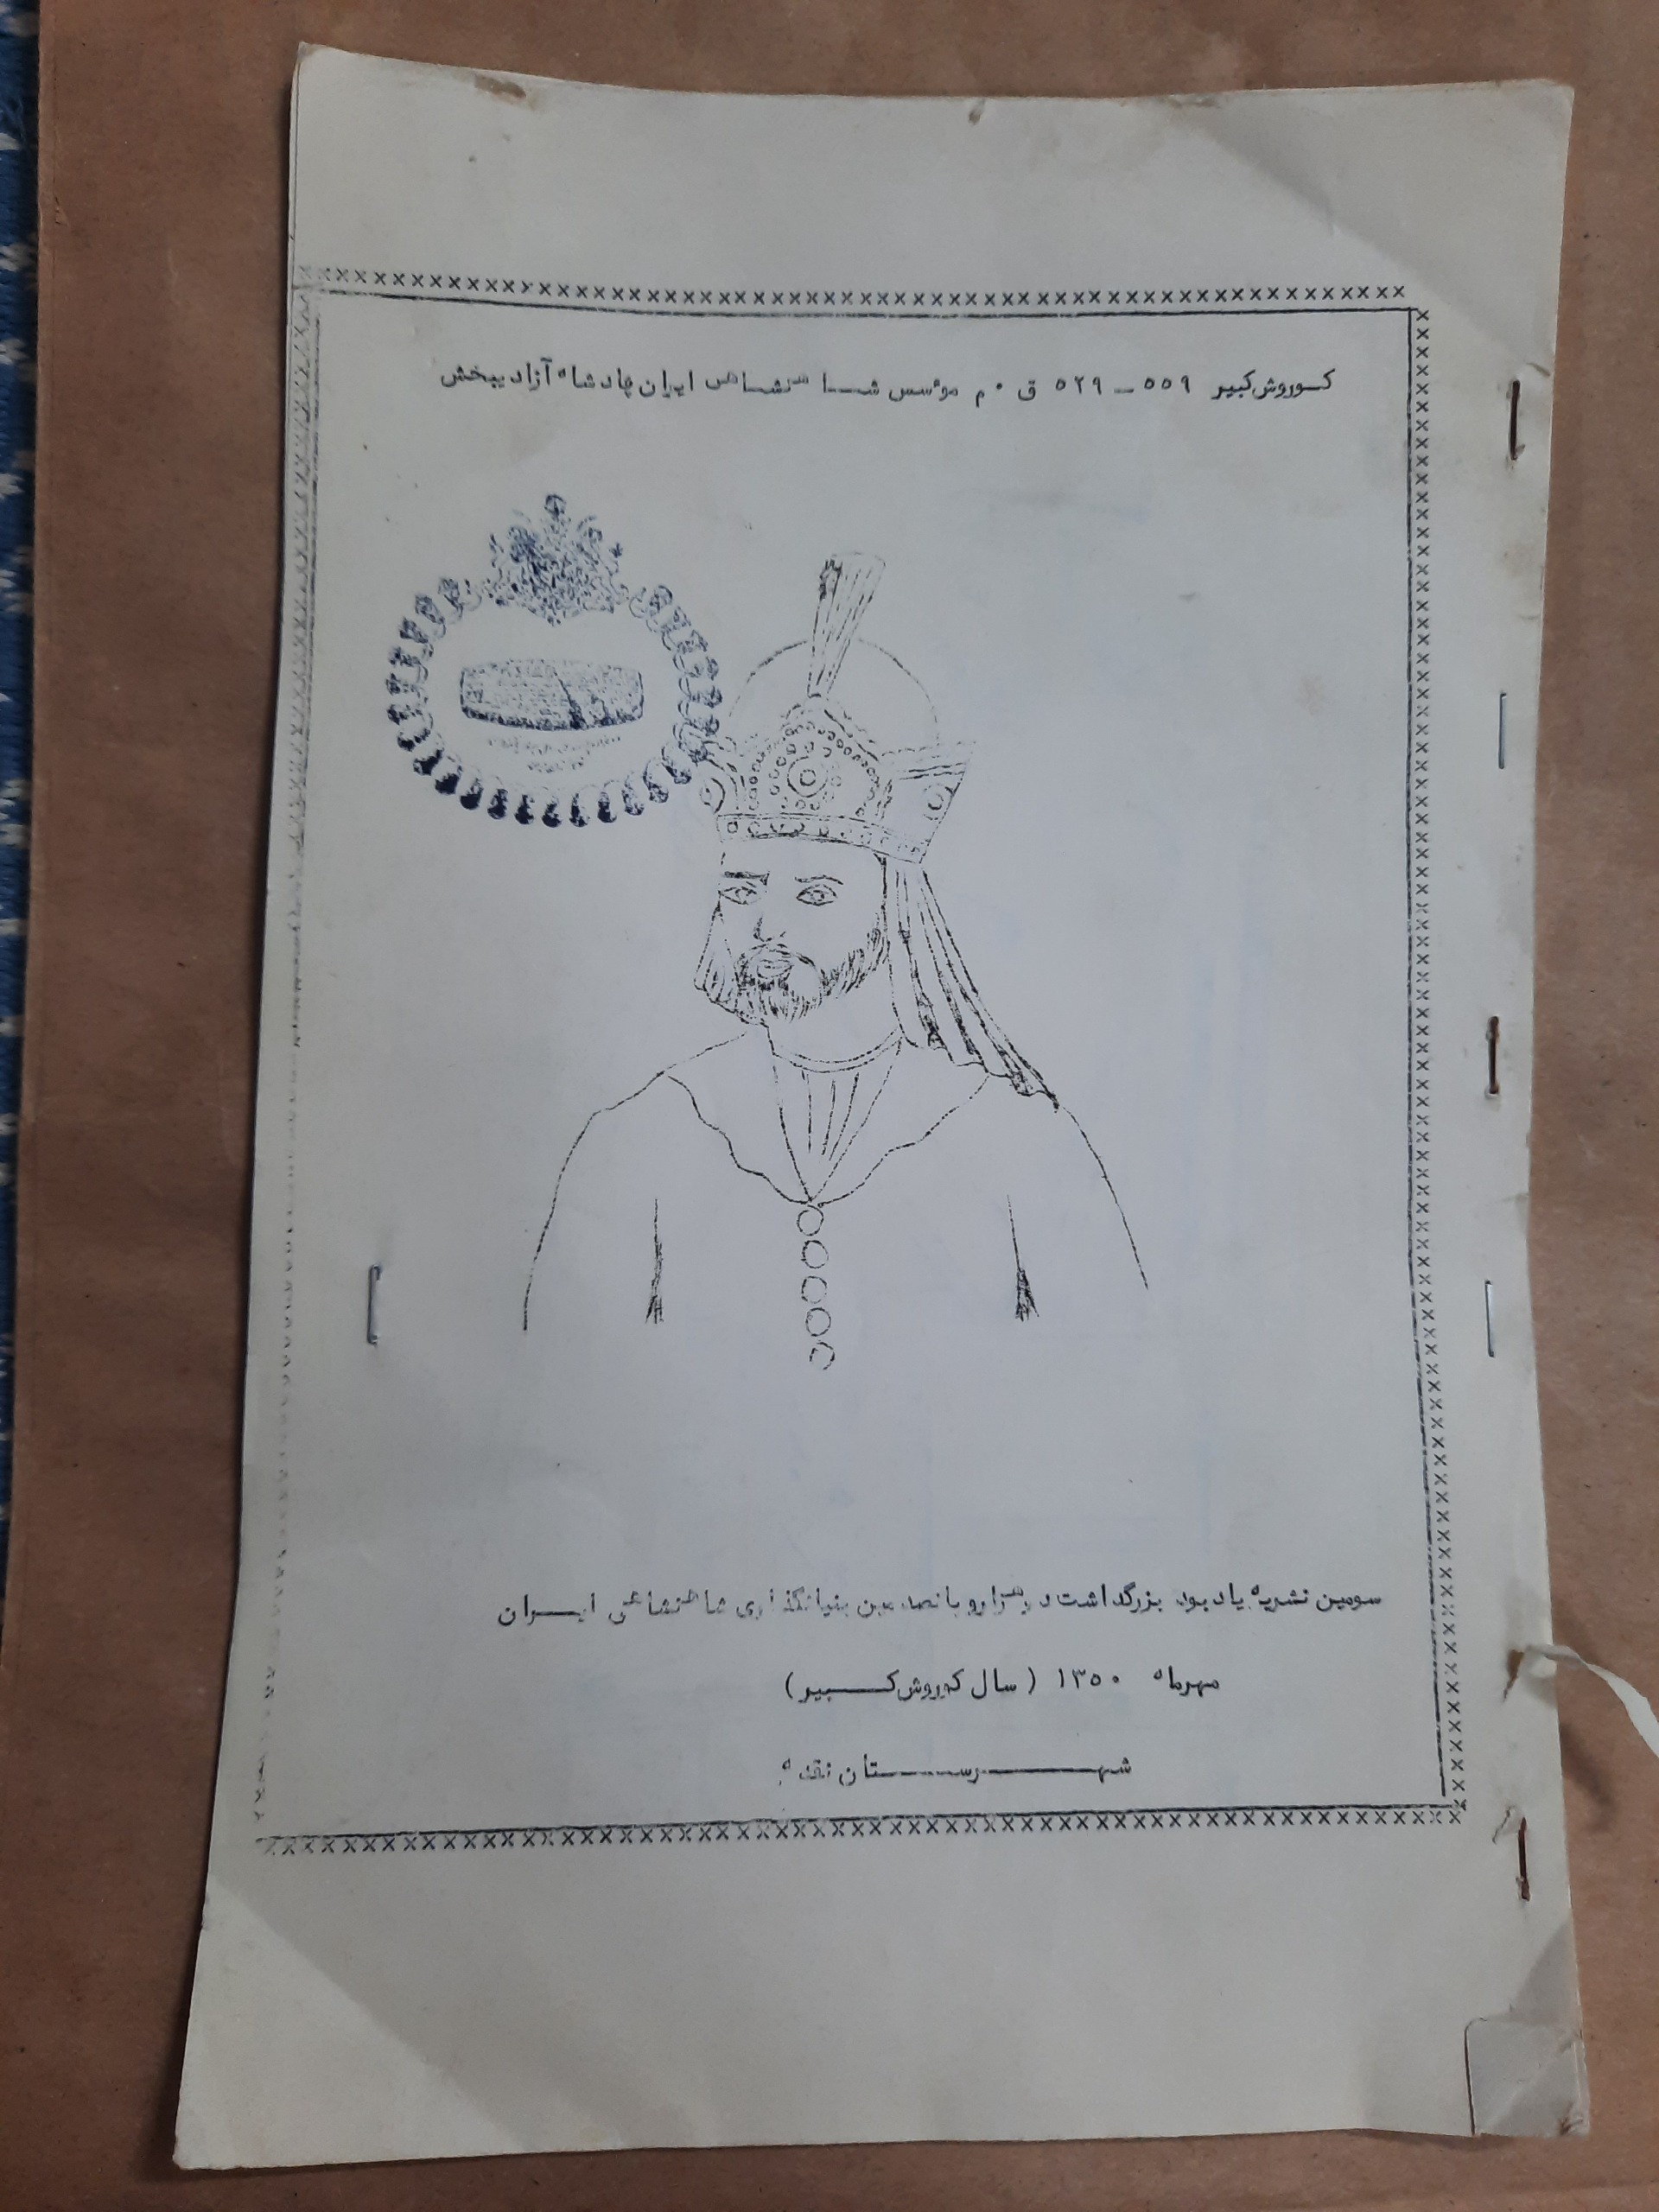 کوروش کبیر ۵۵۹ - ۵۲۹ ق ۰ م موٴسس شاهنشاهی ایران پادشاه آزادیبخش
سومین نشریه یادبود بزرگداشت دوهزار و پانصدمین بنیانگذاری شاهنشاهی ایران
مهرماه ۱۳۵۰ (سال کوروش کبیر)
شهرستان نقده